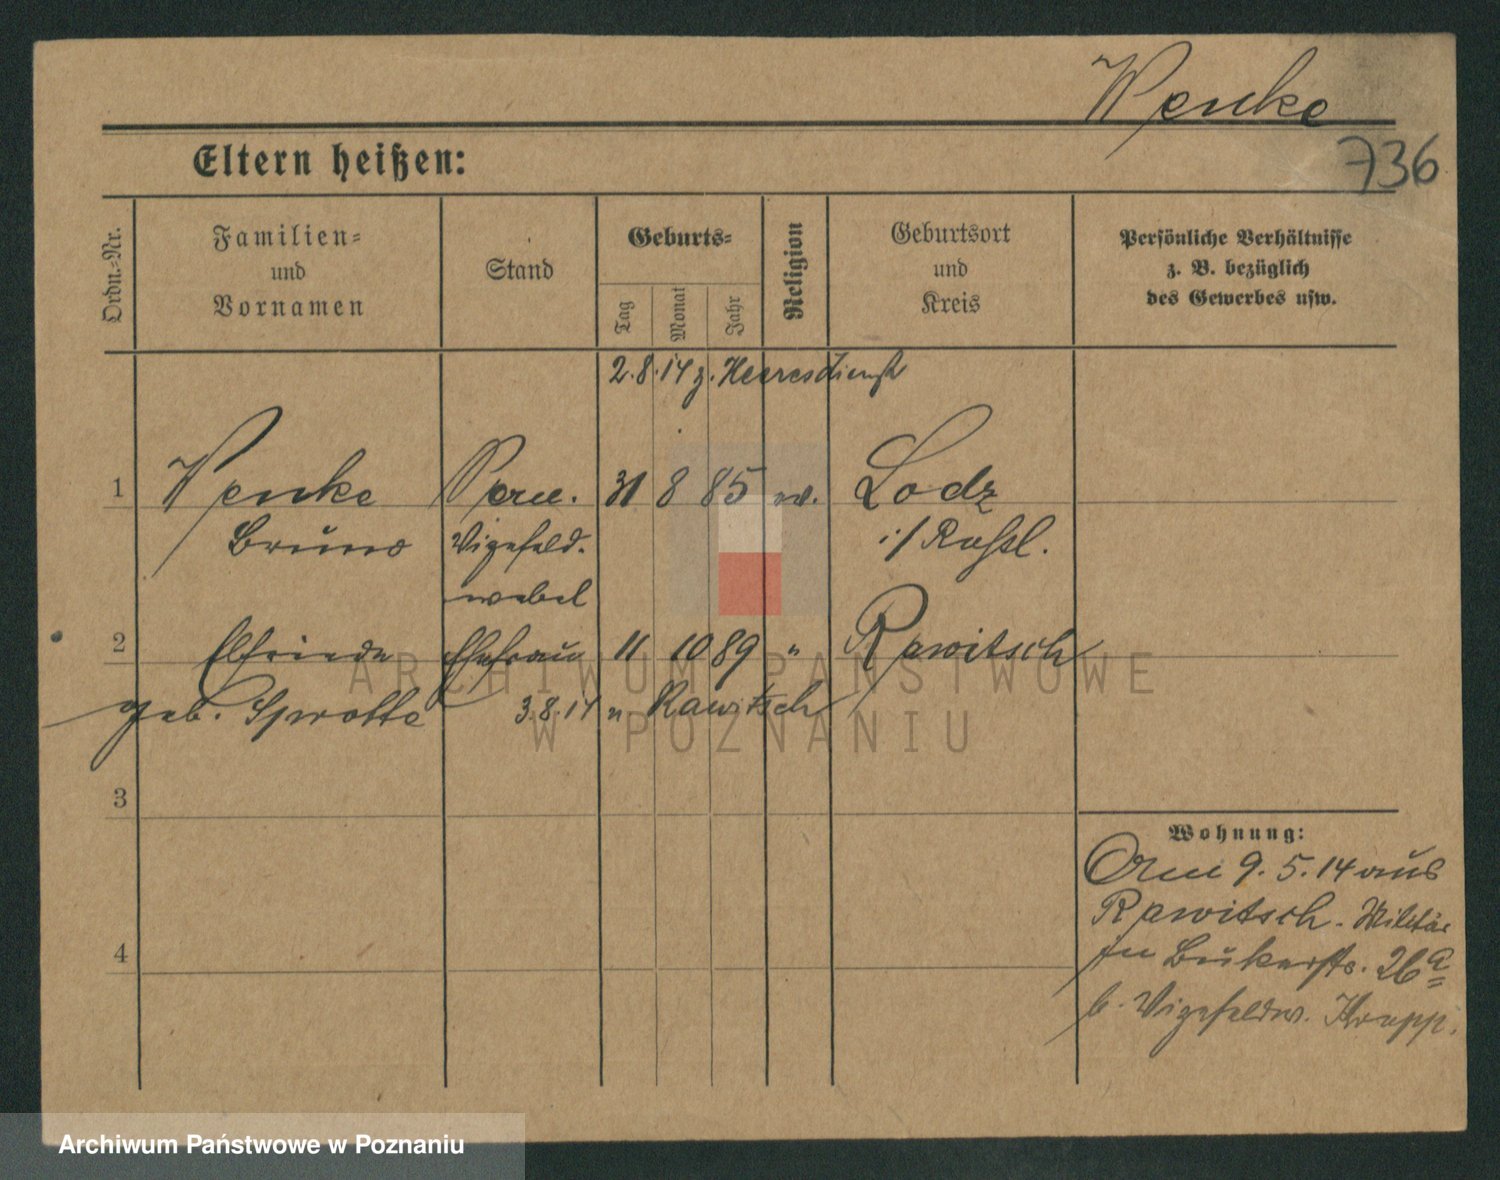 Wenke
736
Eltern heißen:
Ordn.-Nr.
Familien-
und
Vornamen
Stand
Geburts-
Tag
Monat
Jahr
Religion
Geburtsort
und
Kreis
Persönliche Verhältnisse
z. B. bezüglich
des Gewerbes usw.
2.8.14 z. Heeresdienst
1 Wenke 31 8 85 ev. Lodz
Bruno Vizefeld- i/Rußl.
webel
2 Elfriede Ehefrau 11 10 89 " Rawitsch
geb. Sprotte 3.8.14 n Rawitsch
3
4
Wohnung:
9.5.14 aus
Rawitsch. Militär
Bukerstr. 26a
b. Vizefeldw. Knapp.
ARCHIWUM PAŃSTWOWE
W POZNANIU
Archiwum Państwowe w Poznaniu